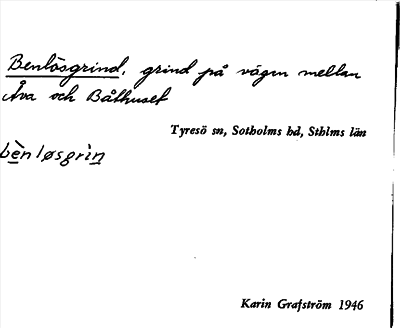 Benlösgrind, grind på vägen mellan
Åva och Båthuset
Tyresö sn, Sotholms hd, Sthlms län
bènløsgrìn
Karin Grafström 1946